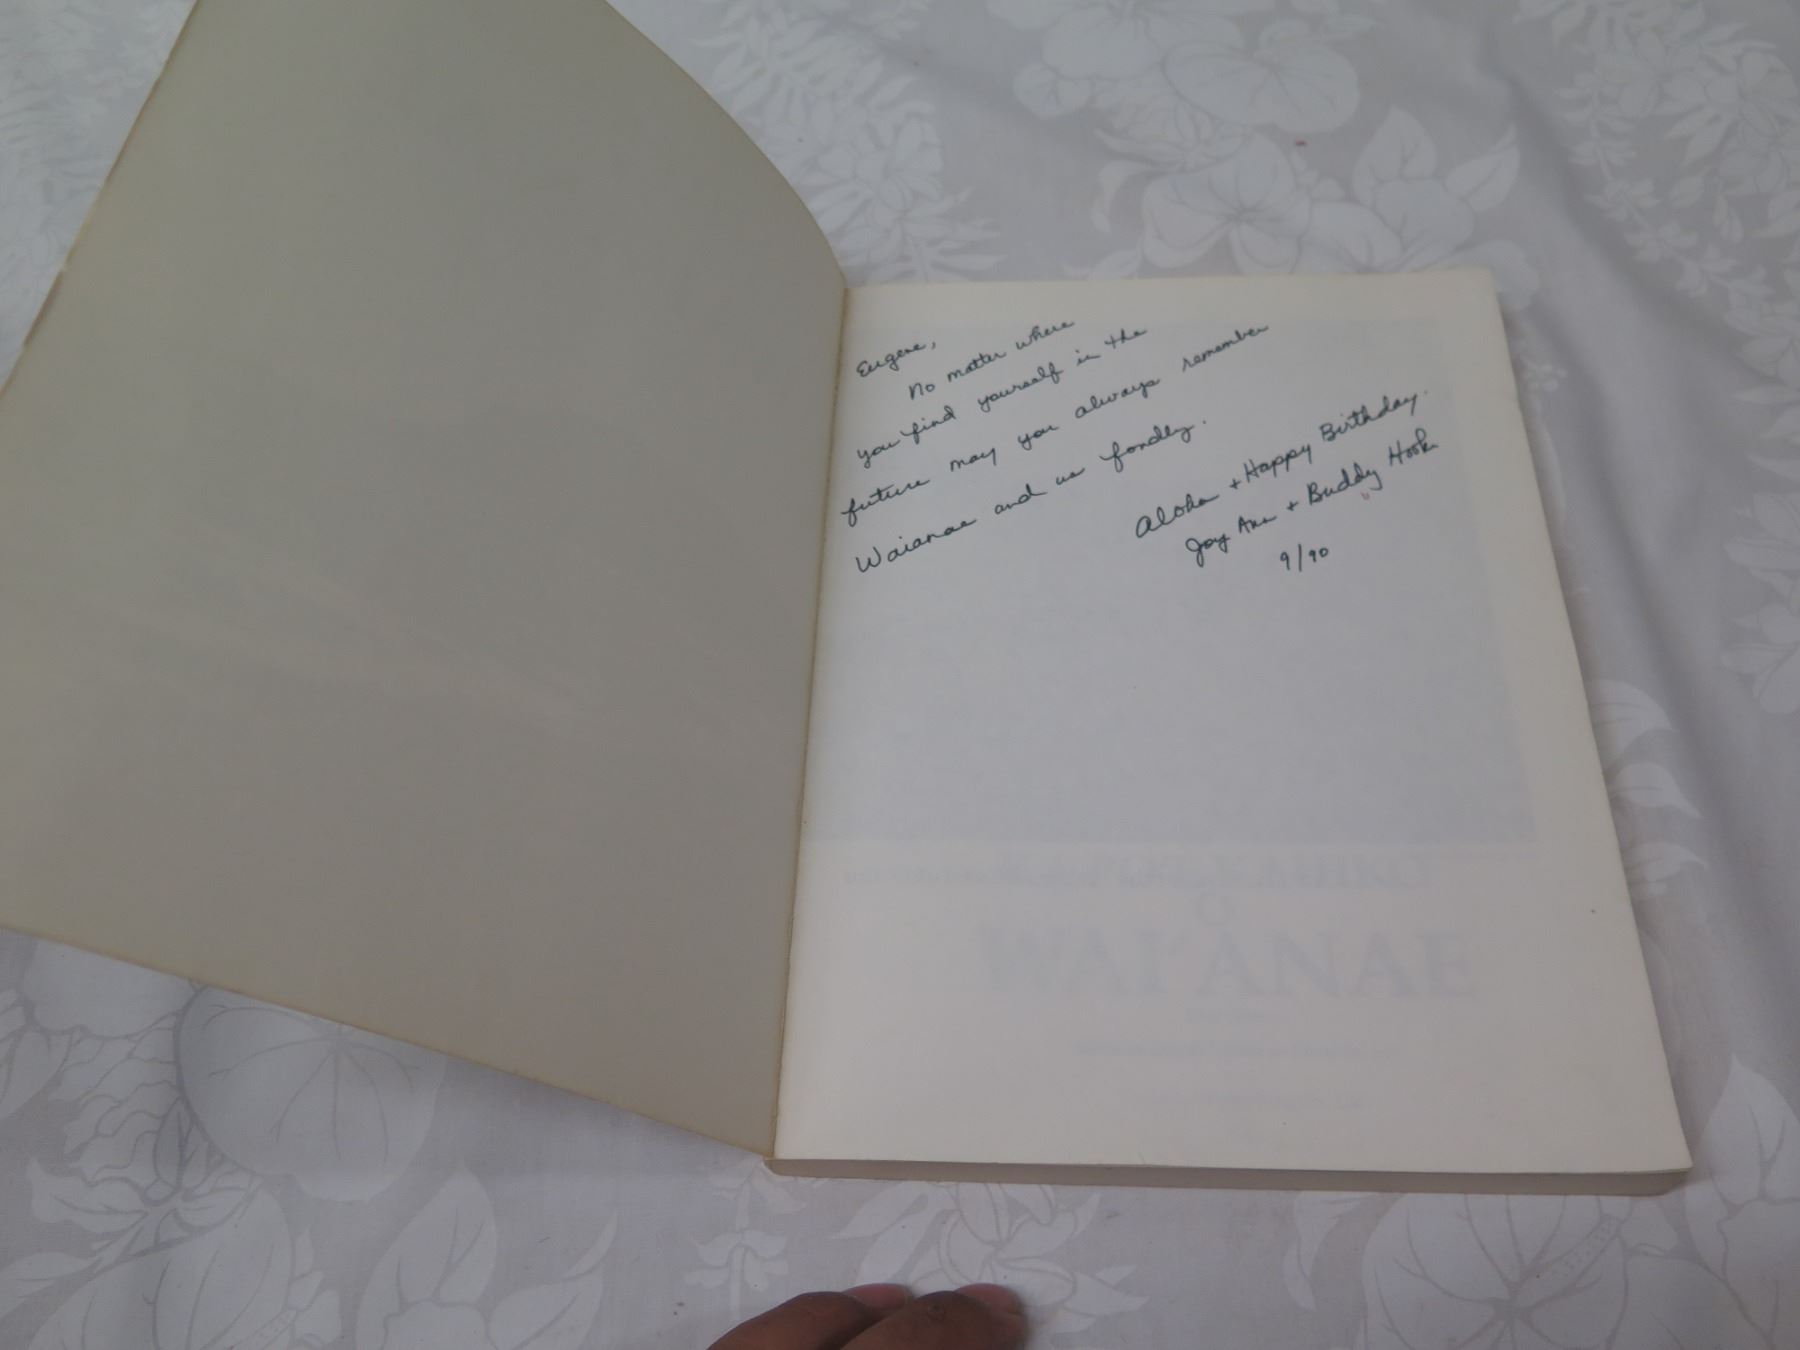 Eugene,
No matter where
you find yourself in the
future may you always remember
Waianae and us fondly.
Aloha + Happy Birthday.
Joy Ann + Buddy Hook
9/90
O
WAI'ANAE